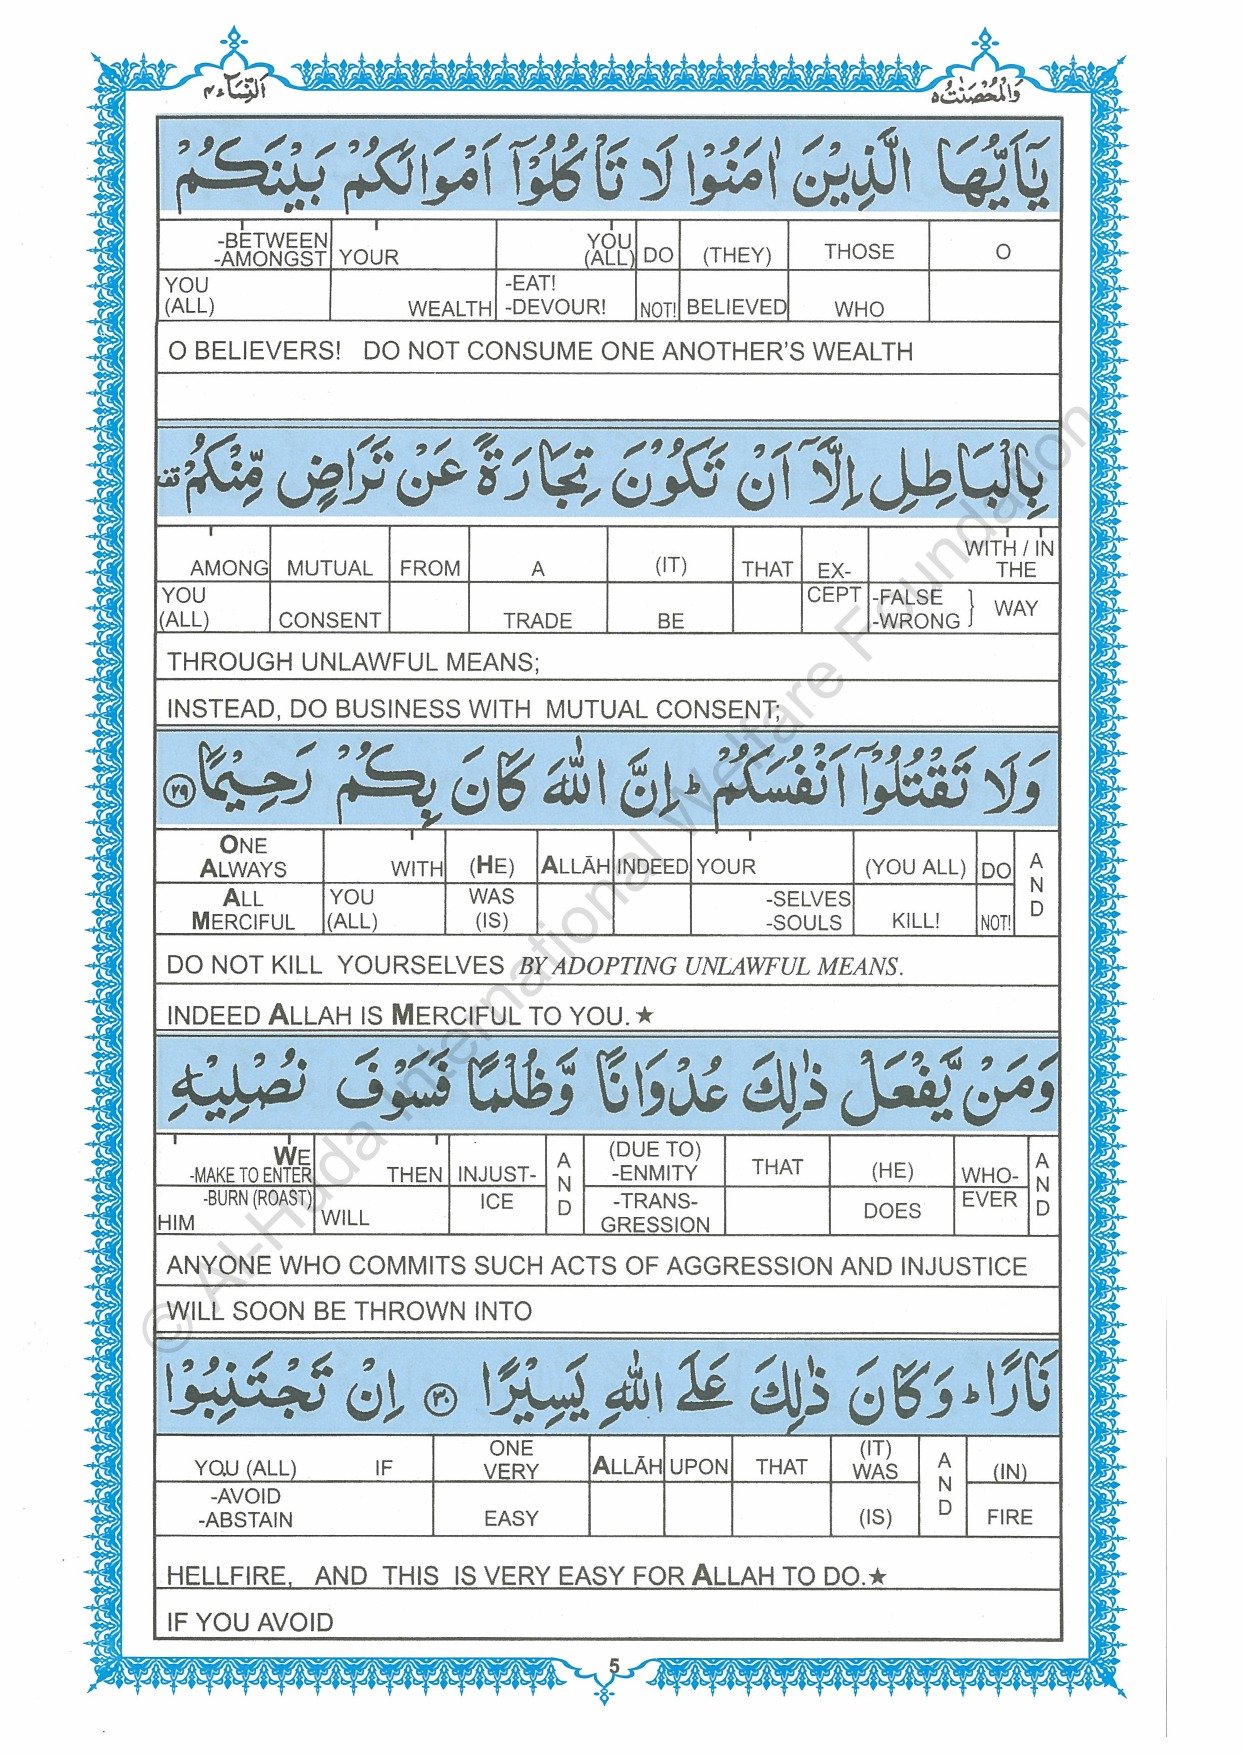 اَلنِّسَاۤء٤
وَالْمُحْصَنٰتُ٥
يٰۤاَيُّهَا الَّذِيْنَ اٰمَنُوْا لَا تَاْكُلُوْۤا اَمْوَالَكُمْ بَيْنَكُمْ
-BETWEEN -AMONGST YOUR YOU (ALL) DO (THEY) THOSE O
YOU (ALL) WEALTH -EAT! -DEVOUR! NOT! BELIEVED WHO
O BELIEVERS! DO NOT CONSUME ONE ANOTHER'S WEALTH
بِالْبَاطِلِ اِلَّاۤ اَنْ تَكُوْنَ تِجَارَةً عَنْ تَرَاضٍ مِّنْكُمْ قف
AMONG MUTUAL FROM A (IT) THAT EX- WITH / IN THE
YOU (ALL) CONSENT TRADE BE CEPT -FALSE -WRONG } WAY
THROUGH UNLAWFUL MEANS;
INSTEAD, DO BUSINESS WITH MUTUAL CONSENT;
وَلَا تَقْتُلُوْۤا اَنْفُسَكُمْ ؕ اِنَّ اللّٰهَ كَانَ بِكُمْ رَحِيْمًا ٢٩
ONE ALWAYS WITH (HE) ALLĀH INDEED YOUR (YOU ALL) DO AND
ALL MERCIFUL YOU (ALL) WAS (IS) -SELVES -SOULS KILL! NOT!
DO NOT KILL YOURSELVES BY ADOPTING UNLAWFUL MEANS.
INDEED ALLAH IS MERCIFUL TO YOU.★
وَمَنْ يَّفْعَلْ ذٰلِكَ عُدْوَانًا وَّظُلْمًا فَسَوْفَ نُصْلِيْهِ
WE -MAKE TO ENTER THEN INJUST- AND (DUE TO) -ENMITY THAT (HE) WHO- AND
-BURN (ROAST) HIM WILL ICE -TRANS- GRESSION DOES EVER
ANYONE WHO COMMITS SUCH ACTS OF AGGRESSION AND INJUSTICE
WILL SOON BE THROWN INTO
نَارًا ؕ وَكَانَ ذٰلِكَ عَلَى اللّٰهِ يَسِيْرًا ٣٠ اِنْ تَجْتَنِبُوْا
YOU (ALL) IF ONE VERY ALLĀH UPON THAT (IT) WAS AND (IN)
-AVOID -ABSTAIN EASY (IS) FIRE
HELLFIRE, AND THIS IS VERY EASY FOR ALLAH TO DO.★
IF YOU AVOID
5
© Al-Huda International Welfare Foundation